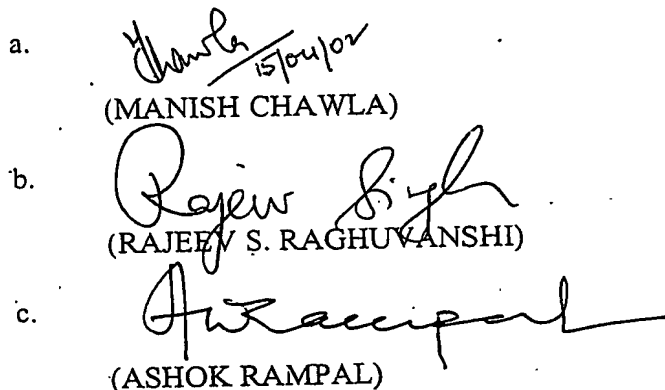 a. Chawla 15/04/02
(MANISH CHAWLA)
b. Rajeev Singh
(RAJEEV S. RAGHUVANSHI)
c. AkRampal
(ASHOK RAMPAL)